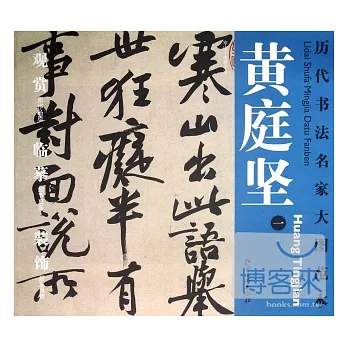 历代书法名家大图范本
Lidai Shufa Mingjia Datu Fanben
黄庭坚
一
Huang Tingjian
寒山出此語舉
世狂癡半有
事對面說所
观赏
临摹
装饰
博客來
books.com.tw